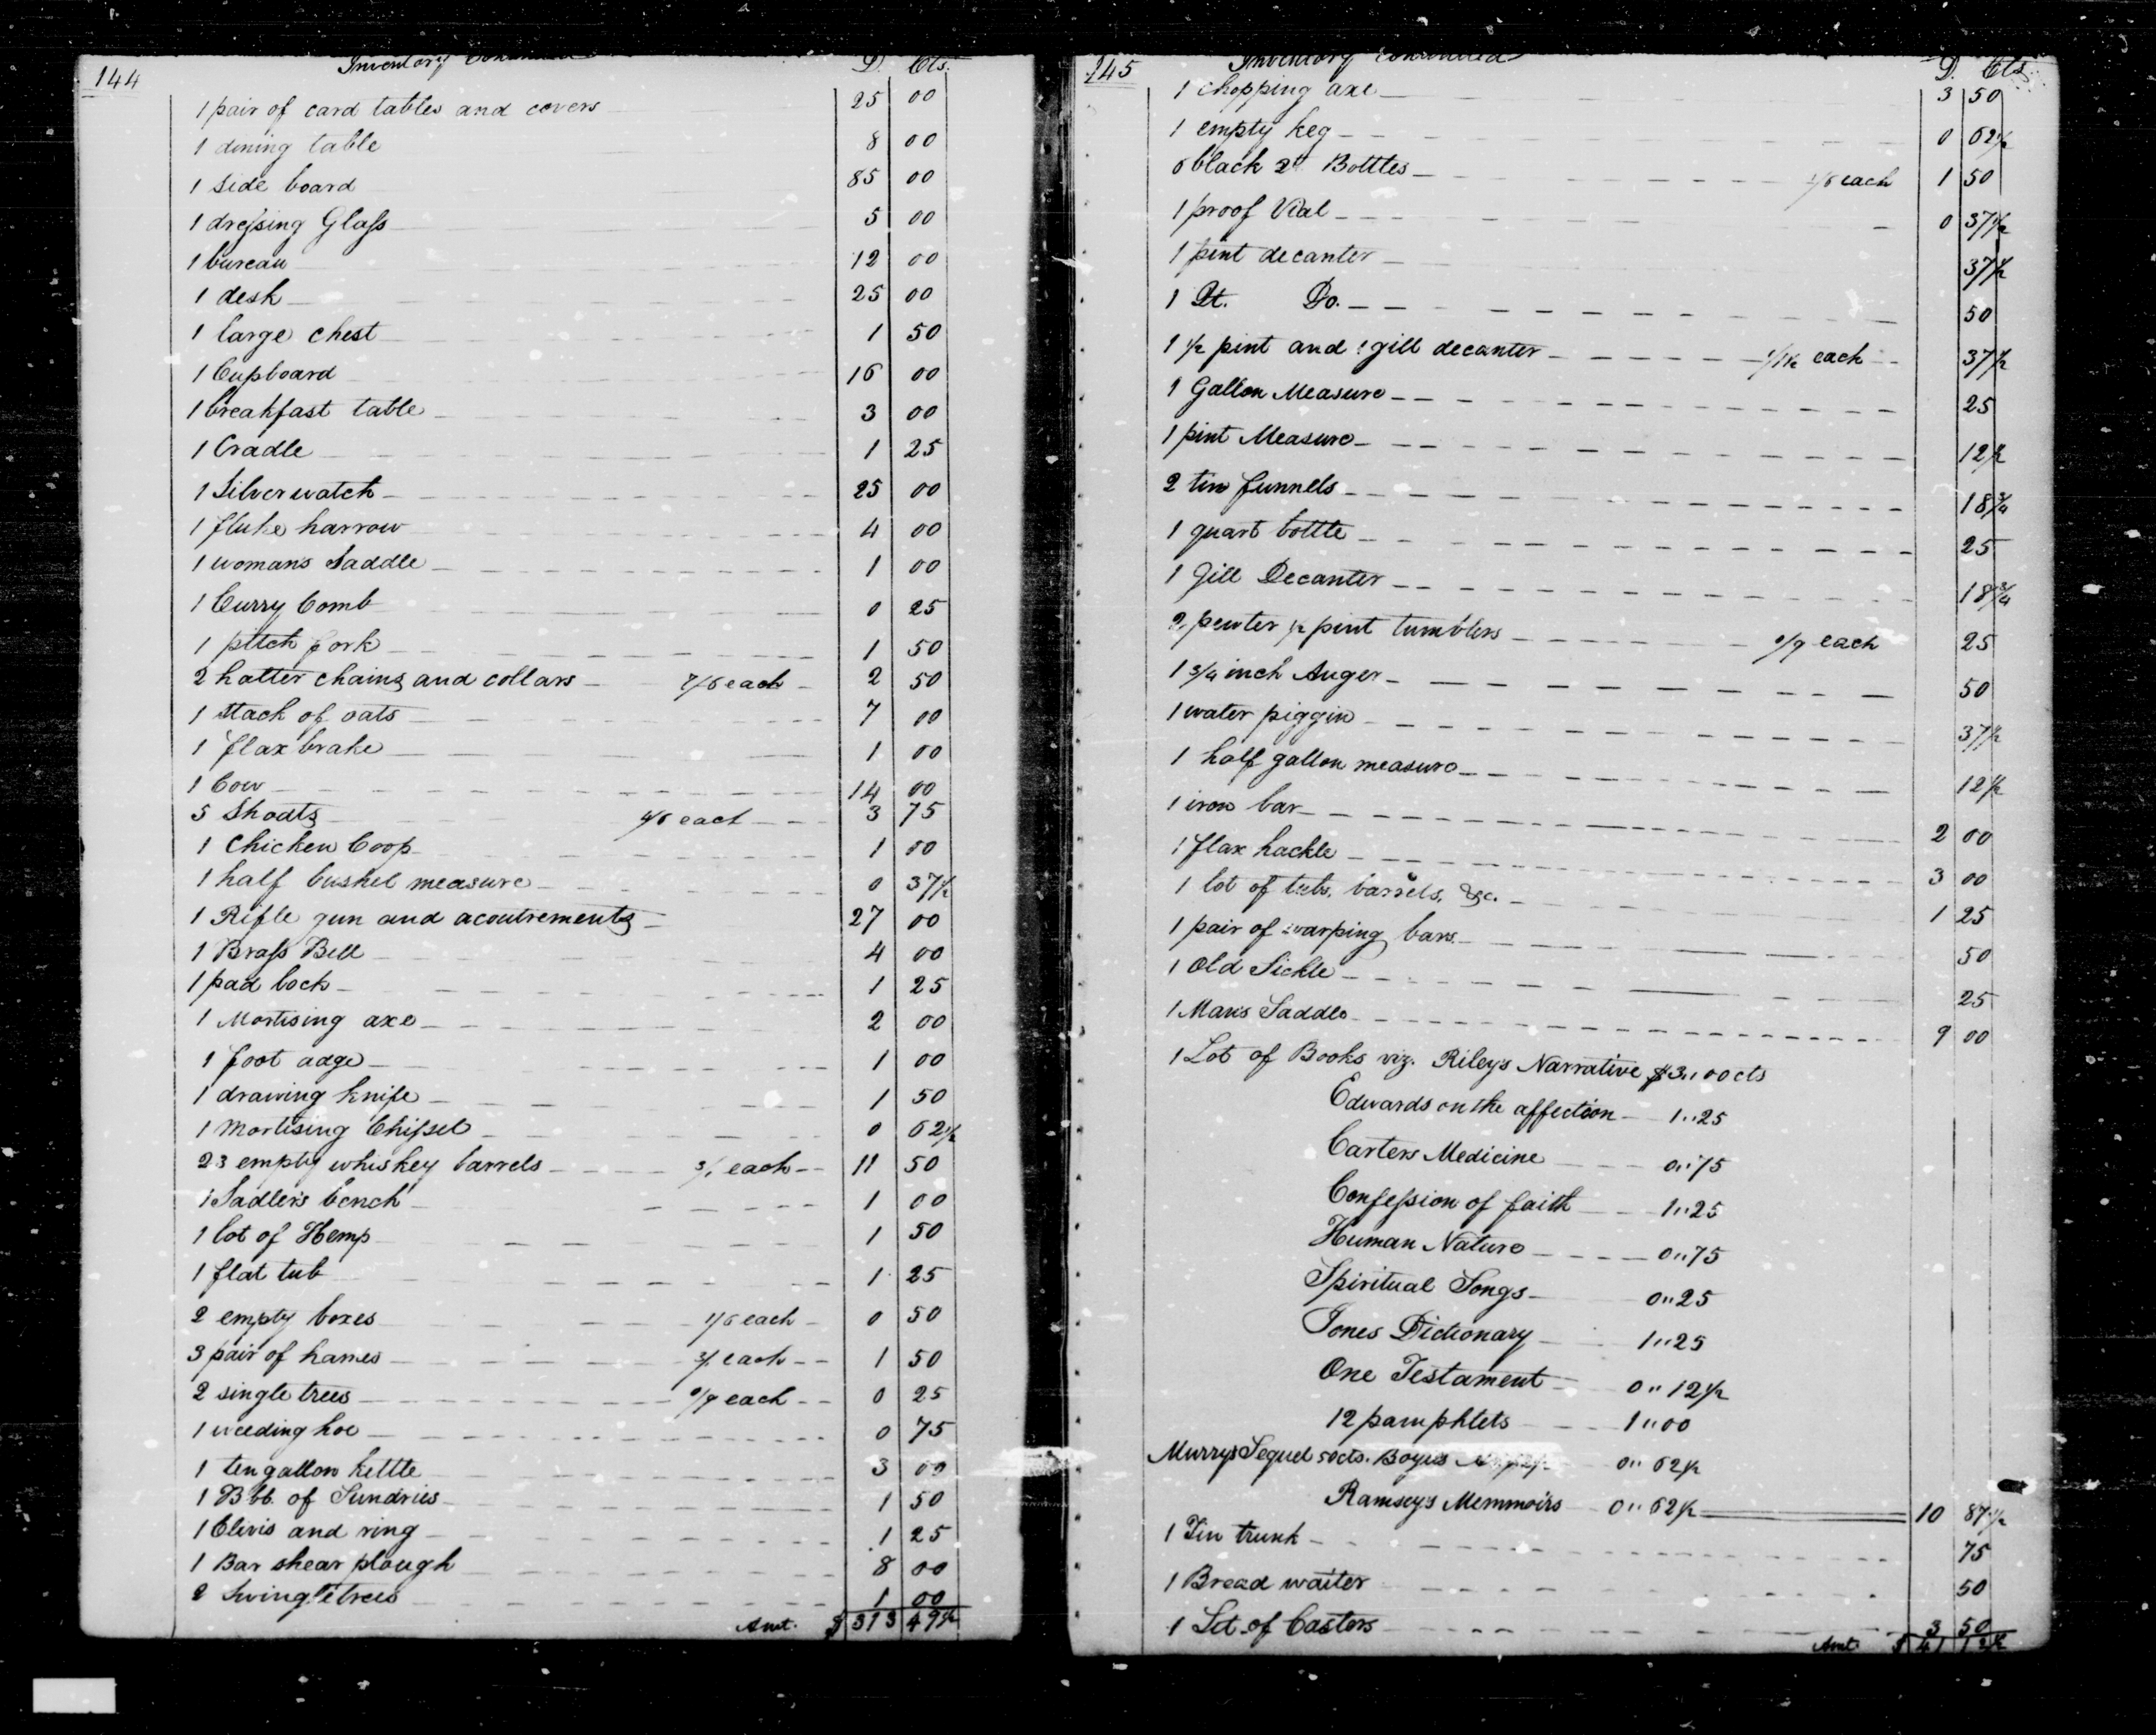 144
Inventory Continued
D. Cts.
1 pair of card tables and covers 25 00
1 dining table 8 00
1 side board 85 00
1 dressing Glass 5 00
1 bureau 12 00
1 desk 25 00
1 large chest 1 50
1 Cupboard 16 00
1 breakfast table 3 00
1 Cradle 1 25
1 Silver watch 25 00
1 fluke harrow 4 00
1 womans Saddle 1 00
1 Curry Comb 0 25
1 pitch fork 1 50
2 halter chains and collars 7/6 each 2 50
1 stack of oats 7 00
1 flax brake 1 00
1 Cow 14 00
5 Shoats 4/6 each 3 75
1 Chicken Coop 1 00
1 half bushel measure 0 37½
1 Rifle gun and acoutrements 27 00
1 Brass Bell 4 00
1 pad lock 1 25
1 Mortising axe 2 00
1 foot adge 1 00
1 drawing knife 1 50
1 Mortising Chissel 0 62½
23 empty whiskey barrels 3/ each 11 50
1 Sadler's bench 1 00
1 lot of Hemp 1 50
1 flat tub 1 25
2 empty boxes 1/6 each 0 50
3 pair of hames 3/ each 1 50
2 single trees 0/9 each 0 25
1 weeding hoe 0 75
1 ten gallon kettle 3 00
1 Bbl. of Sundries 1 50
1 Clevis and ring 1 25
1 Bar shear plough 8 00
2 Swingletrees 1 00
Amt. $ 313 49½
145
Inventory Continued
D. Cts
1 Chopping axe 3 50
1 empty keg 0 62½
6 black 2qt Bottles 1/6 each 1 50
1 proof Vial 0 37½
1 pint decanter 37½
1 Qt. Do. 50
1 ½ pint and 1 gill decanter 1/1½ each 37½
1 Gallon Measure 25
1 pint Measure 12½
2 tin funnels 18¾
1 quart bottle 25
1 Gill Decanter 18¾
2 pewter ½ pint tumblers 0/9 each 25
1 3/4 inch Auger 50
1 water piggin 37½
1 half gallon measure 12½
1 iron bar 2 00
1 flax hackle 3 00
1 lot of tubs, barrels, &c. 1 25
1 pair of warping bars 50
1 Old Sickle 25
1 Man's Saddle 9 00
1 Lot of Books viz. Riley's Narrative $3,,00cts
Edwards on the affection 1,,25
Carters Medicine 0,,75
Confession of faith 1,,25
Human Nature 0,,75
Spiritual Songs 0,,25
Jones Dictionary 1,,25
One Testament 0,,12½
12 pamphlets 1,,00
Murrys Sequel 50cts. 0,,62½
Ramsey's Memmoirs 0,,62½ 10 87½
1 Tin trunk 75
1 Bread waiter 50
1 Set of Castors 3 50
Amt $ 41 12½